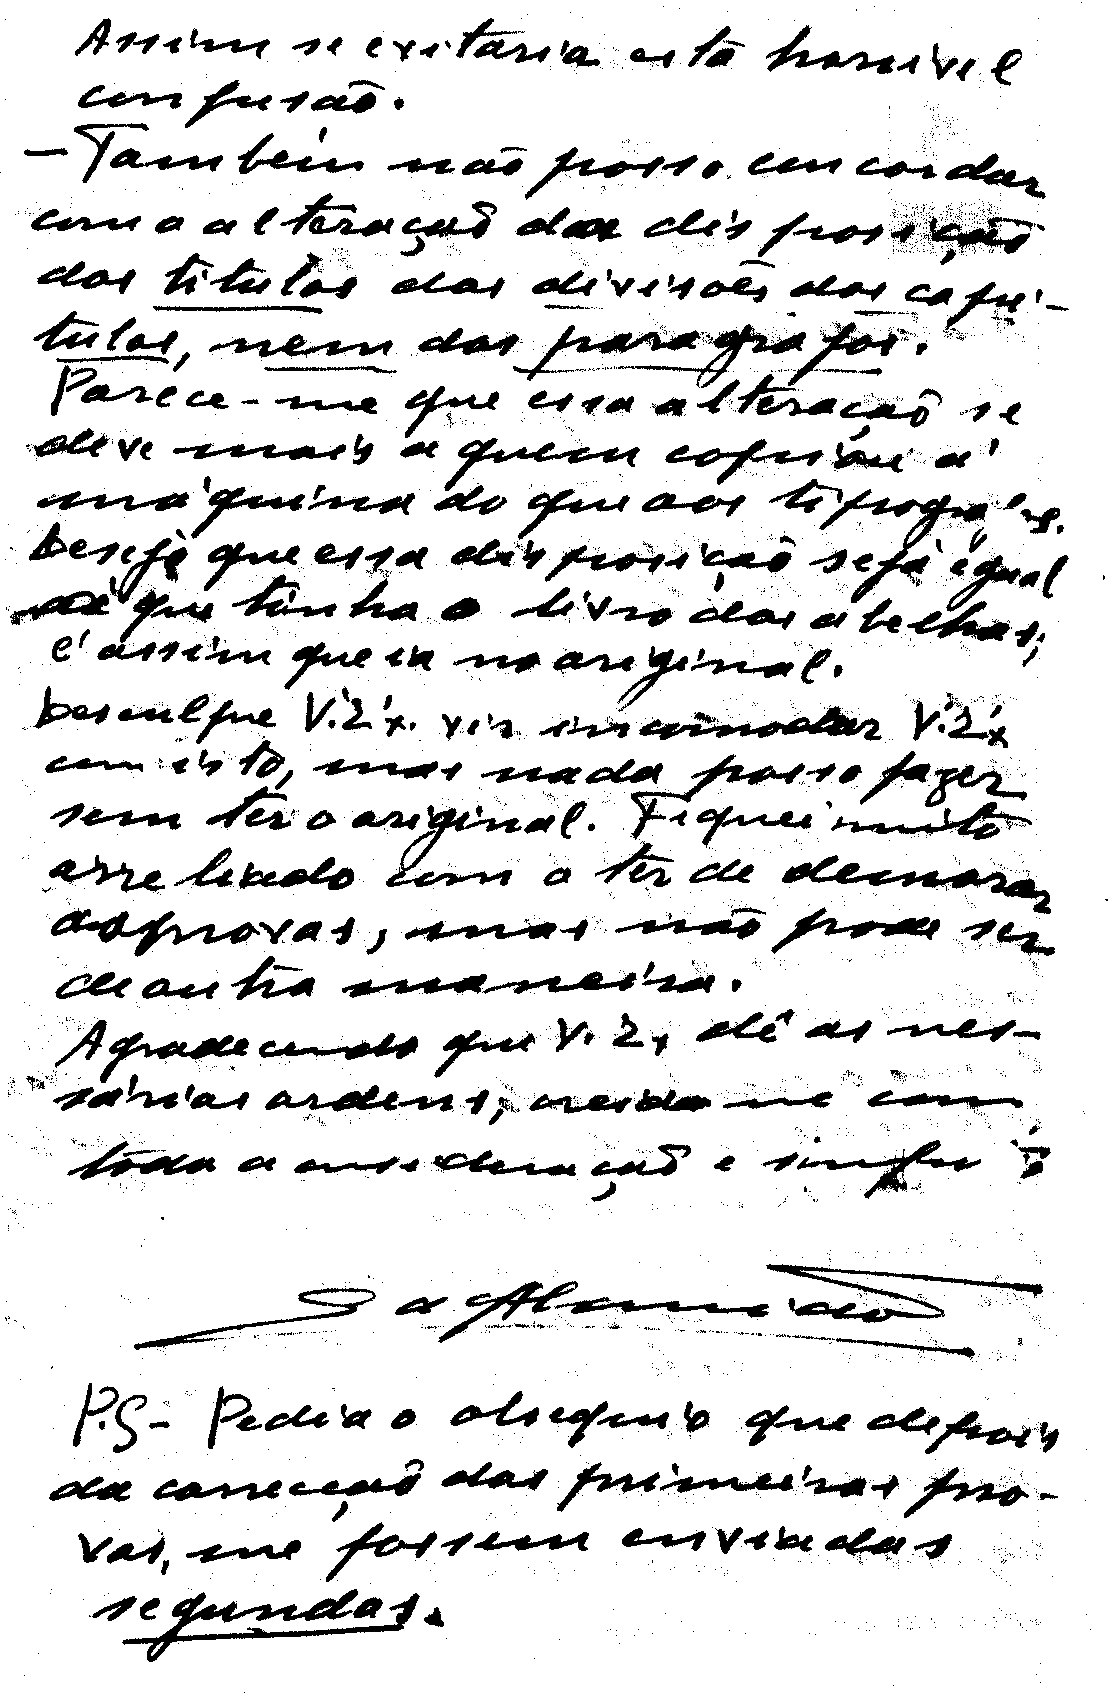 Assim se evitaria esta horrivel
confusão.
- Também não posso concordar
com a alteração da disposição
dos titulos das divisões dos capí-
tulos, nem dos paragrafos.
Parece-me que essa alteração se
deve mais a quem copiou á
máquina do que aos tipográfos.
Desejo que essa disposição seja egual
á que tinha o livro das abelhas;
é assim que ia no original.
Desculpe V. Ex. vir incomodar V. Ex
com isto, mas nada posso fazer
sem ter o original. Fiquei muito
arreliado com o ter de demorar
as provas, mas não pode ser
de outra maneira.
Agradecendo que V. Ex, dê as nes-
sárias ordens, creia-me com
toda a consideração e
P.S- Pedia o obsequio que depois
da correcção das primeiras pro-
vas, me fossem enviadas
segundas.